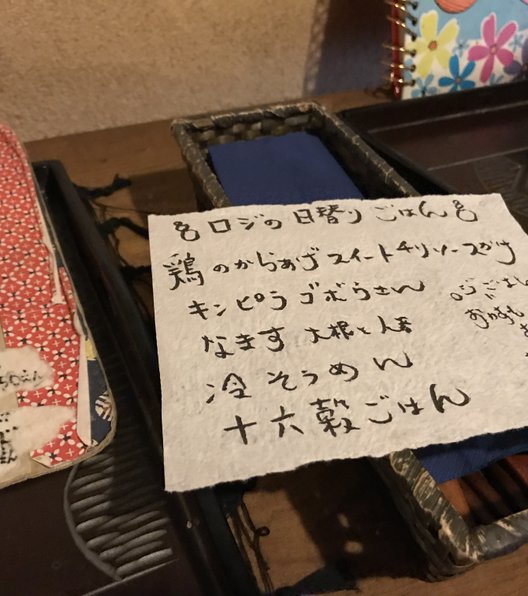 ロジの日替りごはん
鶏のからあげスイートチリソースがけ
キンピラゴボウさん
なます 大根と人参
冷そうめん
十六穀ごはん